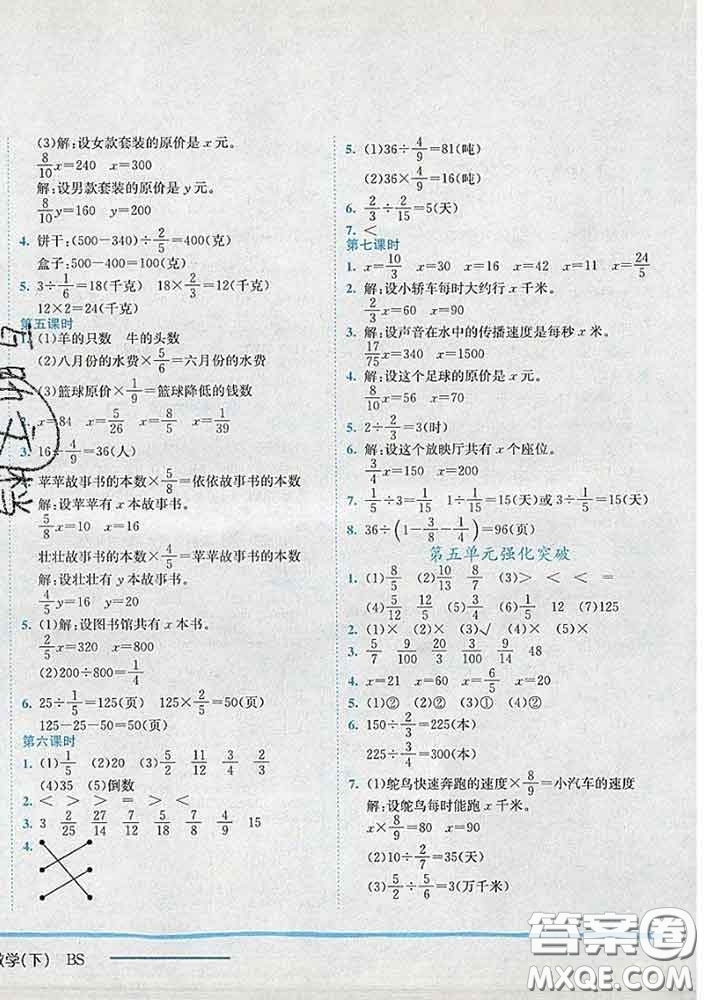 (3)解:设女款套装的原价是 x 元。
8/10 x=240 x=300
解:设男款套装的原价是 y 元。
8/10 y=160 y=200
4. 饼干:(500-340)÷2/5=400(克)
盒子:500-400=100(克)
5. 3÷1/6=18(千克) 18×2/12=3(千克)
12×2=24(千克)
第五课时
1. (1)羊的只数 牛的头数
(2)八月份的水费×5/6=六月份的水费
(3)篮球原价×1/9=篮球降低的钱数
x=84 x=5/26 x=8/5 x=1/39
3. 16÷4/9=36(人)
苹苹故事书的本数×5/8=依依故事书的本数
解:设苹苹有 x 本故事书。
5/8 x=10 x=16
壮壮故事书的本数×4/5=苹苹故事书的本数
解:设壮壮有 y 本故事书。
4/5 y=16 y=20
5. (1)解:设图书馆共有 x 本书。
2/5 x=320 x=800
(2)200÷800=1/4
6. 25÷1/5=125(页) 125×2/5=50(页)
125-25-50=50(页)
第六课时
1. (1)1/5 (2)20 (3)5/2 11/12 3/4 2/3
(4)35 (5)倒数
2. < > > = < >
3. 3 2/25 27/14 7/12 5/18 7/8 4/9 15
4.
5. (1)36÷4/9=81(吨)
(2)36×4/9=16(吨)
6. 2/3÷2/15=5(天)
7. <
第七课时
1. x=10/3 x=30 x=16 x=42 x=11 x=24/5
2. 解:设小轿车每时大约行 x 千米。
2/3 x=60 x=90
3. 解:设声音在水中的传播速度是每秒 x 米。
17/75 x=340 x=1500
4. 解:设这个足球的原价是 x 元。
8/10 x=56 x=70
5. 2÷2/3=3(时)
6. 解:设这个放映厅共有 x 个座位。
3/4 x=150 x=200
7. 1/5÷3=1/15 1÷1/15=15(天)或3÷1/5=15(天)
8. 36÷(1-3/8-1/4)=96(页)
第五单元强化突破
1. (1)8/5 (2)10/13 8/7 (3)> < < =
(4)5/12 4/5 (5)12 (6)1/5 (7)125
2. (1)× (2)× (3)√ (4)×
3. 5/7 9/100 3/20 9/14 48
4. x=21 x=60 x=6/5 x=20
5. (1)② (2)② (3)① (4)②
6. 150÷2/3=225(本)
225÷3/4=300(本)
7. (1)鸵鸟快速奔跑的速度×8/9=小汽车的速度
解:设鸵鸟每时能跑 x 千米。
x×8/9=80 x=90
(2)10÷2/7=35(天)
(3)5/2÷5/6=3(万千米)
数学(下) BS
答案圈
MXQE.COM